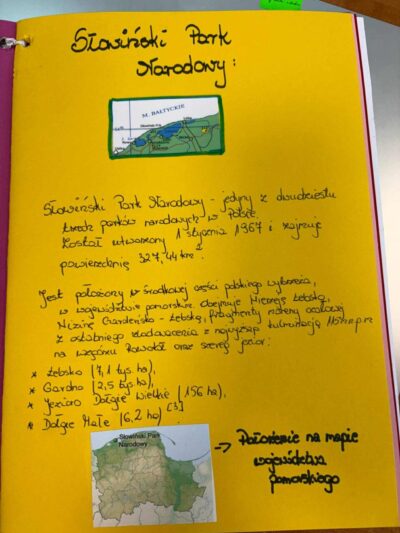 Słowiński Park
Narodowy:
M. BAŁTYCKIE
Słowiński Park Narodowy - jedyny z dwudziestu
trzech parków narodowych w Polsce.
Został utworzony 1 stycznia 1967 i zajmuje
powierzchnię 327,44 km².
Jest położony w środkowej części polskiego wybrzeża,
w województwie pomorskim. Obejmuje Mierzeję Łebską,
Nizinę Gardeńsko - Łebską, fragmenty moreny czołowej
z ostatniego zlodowacenia z najwyższą kulminacją 115 m n.p.m
na wzgórzu Rowokół oraz szereg jezior:
* Łebsko (7,1 tys. ha),
* Gardno (2,5 tys. ha),
* Jezioro Dołgie Wielkie (156 ha),
* Dołgie Małe (6,2 ha) [3]
Słowiński Park
Narodowy
-> Położenie na mapie
województwa
pomorskiego